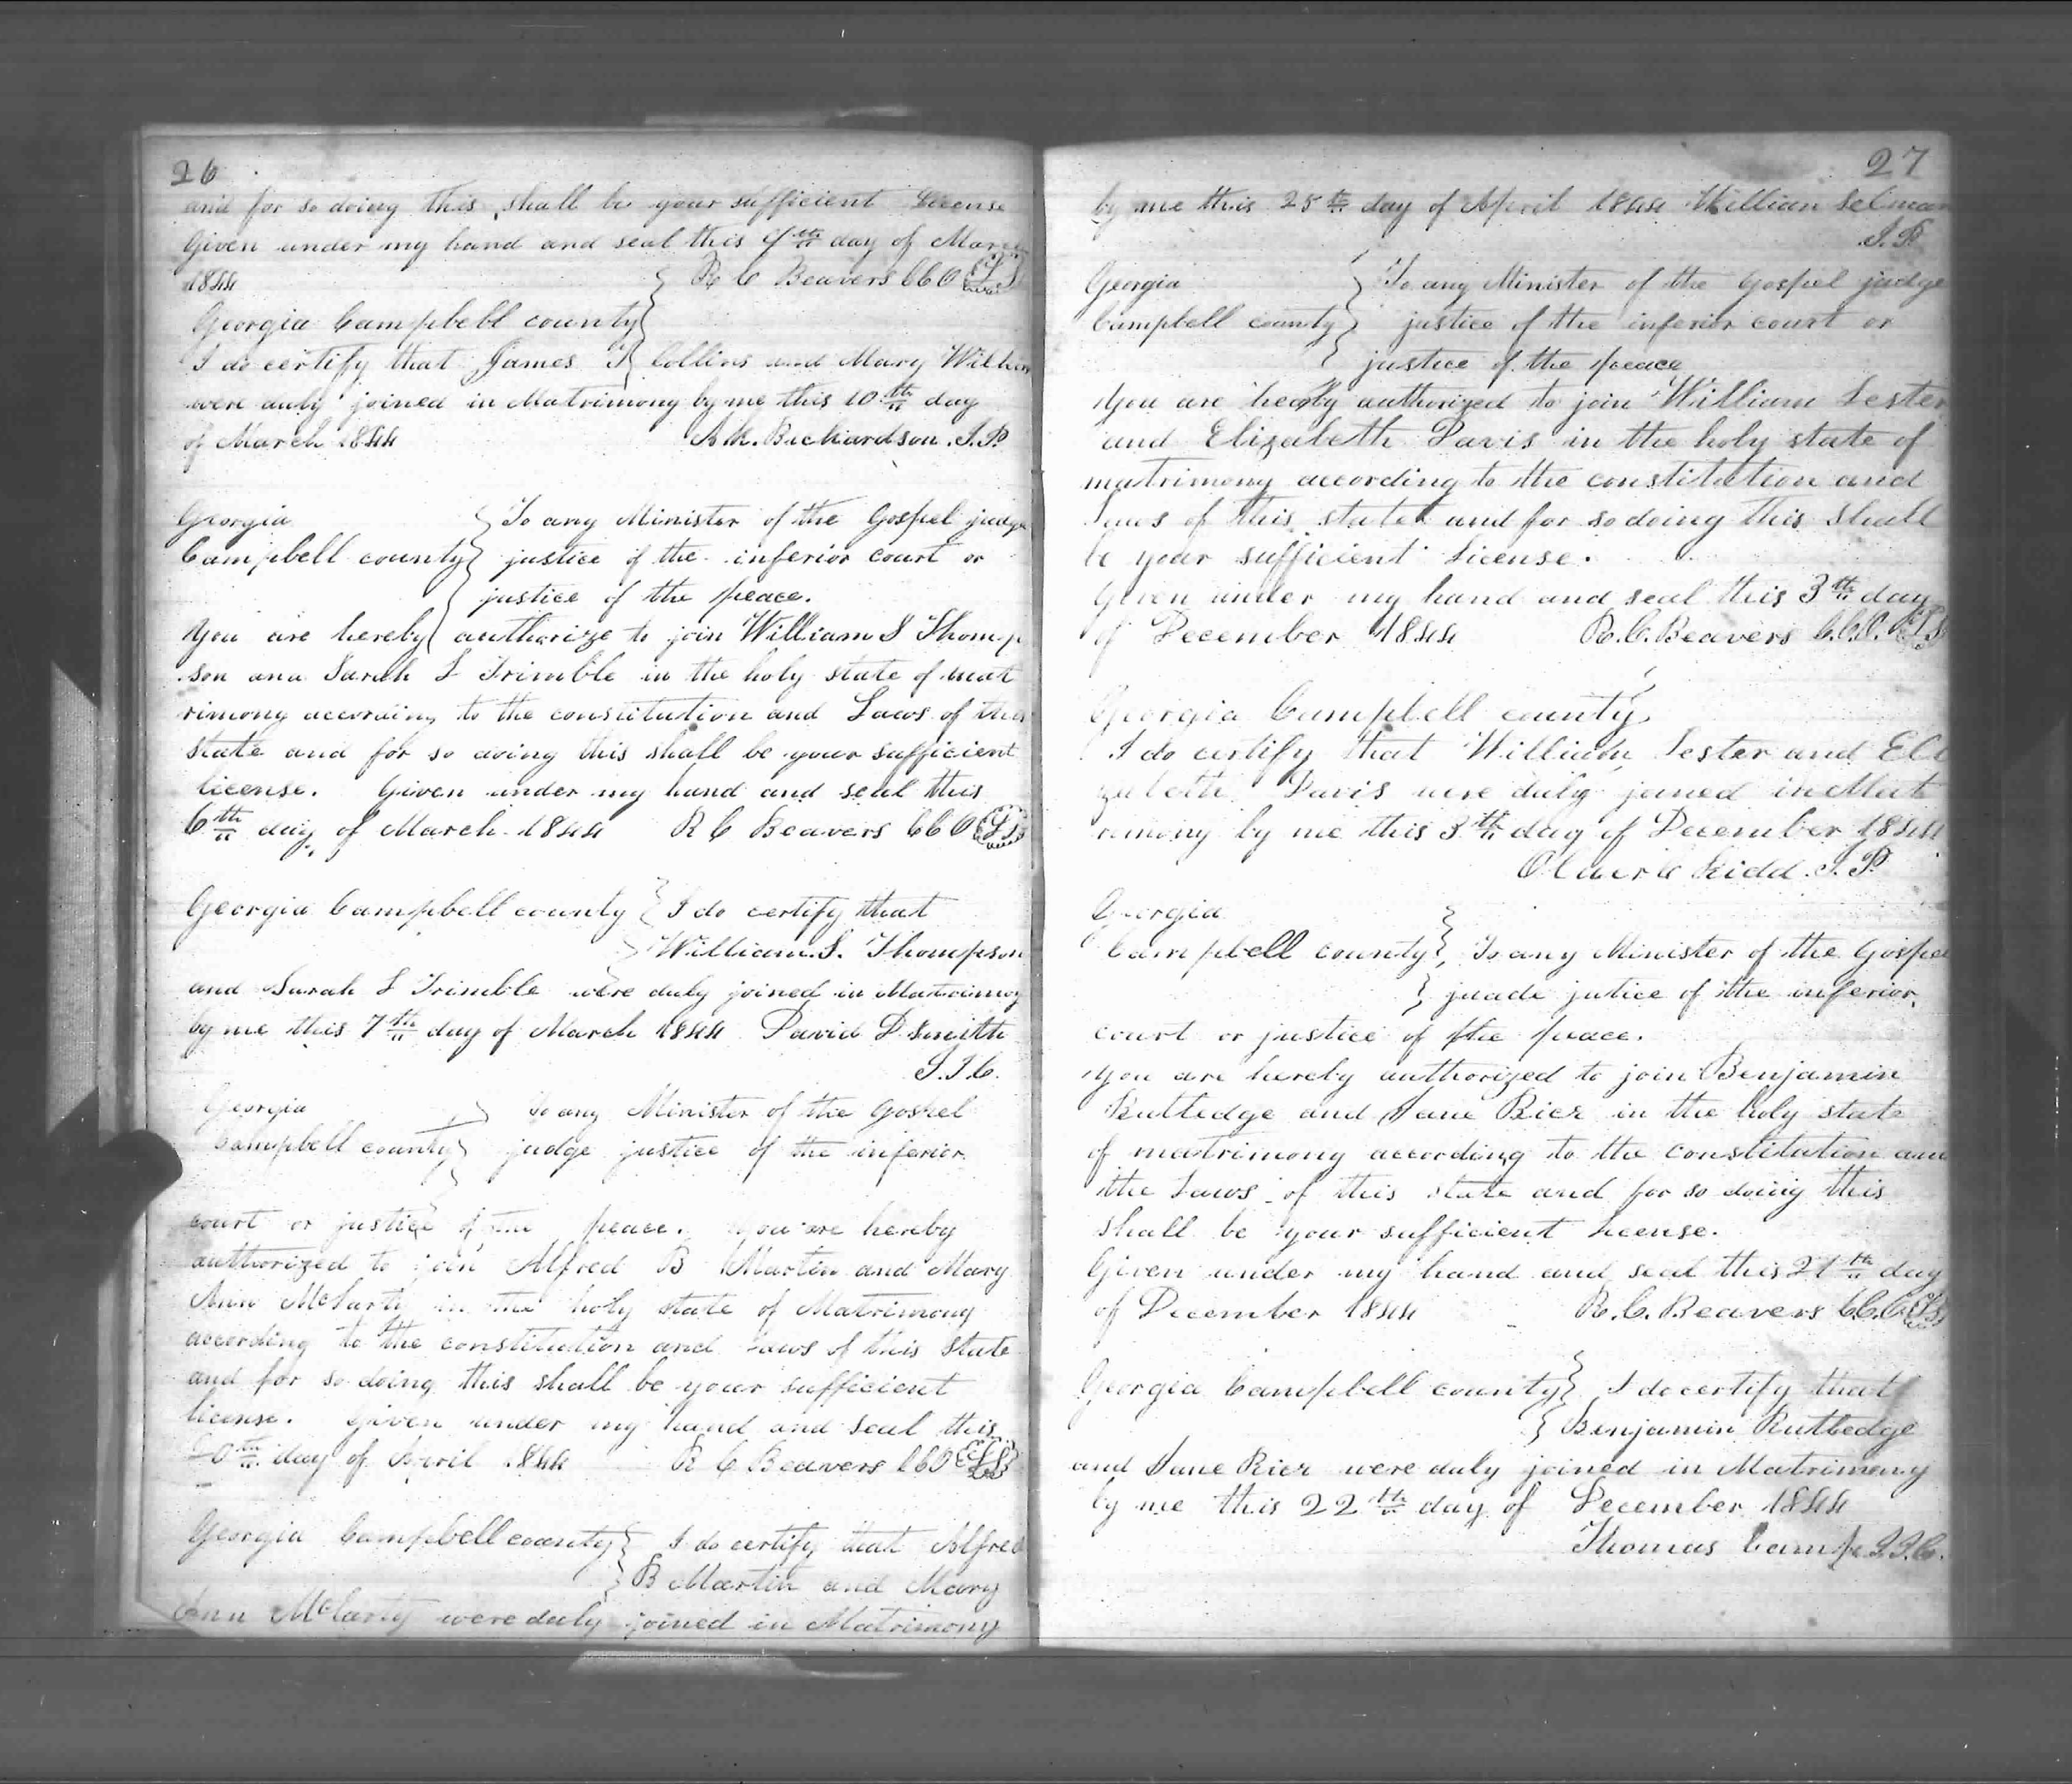 26
and for so doing this shall be your sufficient License
Given under my hand and seal this 4th day of March
1844 R C Beavers CCO LS
Georgia Campbell county
I do certify that James T Collins and Mary
were duly joined in Matrimony by me this 10th day
of March 1844 Richardson J.P.
Georgia To any Minister of the Gospel judge
Campbell county justice of the inferior court or
justice of the peace.
You are hereby authorize to join William S Thomp
son and Sarah L Trimble in the holy state of mat
rimony according to the constitution and Laws of this
state and for so doing this shall be your sufficient
license. Given under my hand and seal this
6th day of March 1844 R C Beavers CCO LS
Georgia Campbell county I do certify that
William S. Thompson
and Sarah L Trimble were duly joined in Matrimony
by me this 7th day of March 1844 David D Smith
J.I.C.
Georgia To any Minister of the Gospel
Campbell county judge justice of the inferior
court or justice of the peace. You are hereby
authorized to join Alfred B Martin and Mary
Ann McLarty in the holy state of Matrimony
according to the constitution and Laws of this state
and for so doing this shall be your sufficient
license. Given under my hand and seal this
20th day of April 1844 R C Beavers CCO LS
Georgia Campbell county I do certify that Alfred
B Martin and Mary
Ann McLarty were duly joined in Matrimony
27
by me this 25th day of April 1844 William Selman
J.P.
Georgia To any Minister of the Gospel judge
Campbell county justice of the inferior court or
justice of the peace
You are hereby authorized to join William Lester
and Elizabeth Davis in the holy state of
matrimony according to the constitution and
Laws of this state and for so doing this shall
be your sufficient License.
Given under my hand and seal this 3th day
of December 1844 R.C. Beavers C.C.O. LS
Georgia Campbell county
I do certify that William Lester and Eli
zabeth Davis were duly joined in Mat
rimony by me this 3th day of December 1844
Kidd J.P.
Georgia
Campbell county To any Minister of the Gospel
juade jutice of the inferior
court or justice of the peace.
you are hereby authorized to join Benjamin
Rutledge and Jane Rier in the holy state
of matrimony according to the constitution and
the Laws of this state and for so doing this
shall be your sufficient license.
Given under my hand and seal this 21th day
of December 1844 R.C. Beavers CC.O LS
Georgia Campbell county I do certify that
Benjamin Rutledge
and Jane Rier were duly joined in Matrimony
by me this 22th day of December 1844
Thomas Camp J.I.C.